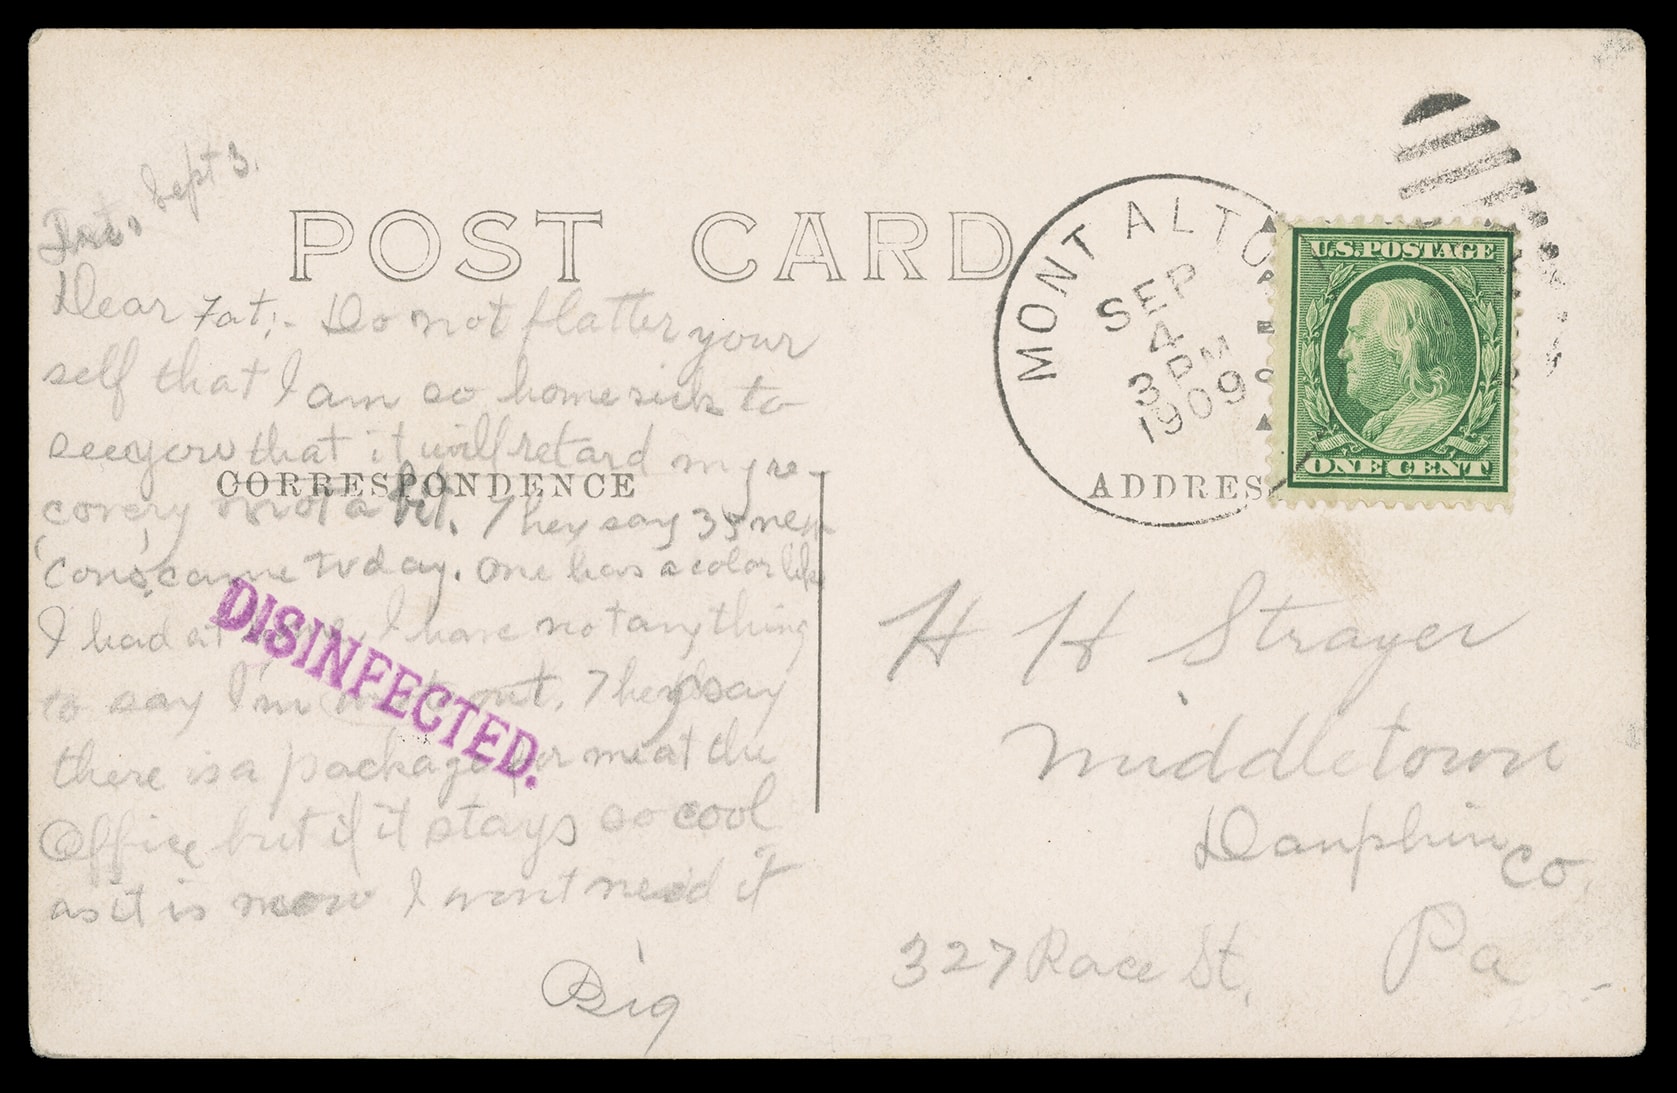 Sept 3.
POST CARD
Dear Fat;- Do not flatter your
self that I am so homesick to
see you that it will retard my re-
covery not a bit. They say 35 new
'Cons' came today. One has a color like
I had at I have not anything
to say I'm out. They say
there is a package for me at the
Office but if it stays so cool
as it is now I wont need it
Big
CORRESPONDENCE
DISINFECTED.
MONT ALTO
SEP
4
3 PM
1909
U.S. POSTAGE
ONE CENT
ADDRESS
H H Strayer
Middletown
Dauphin Co,
327 Race St, Pa